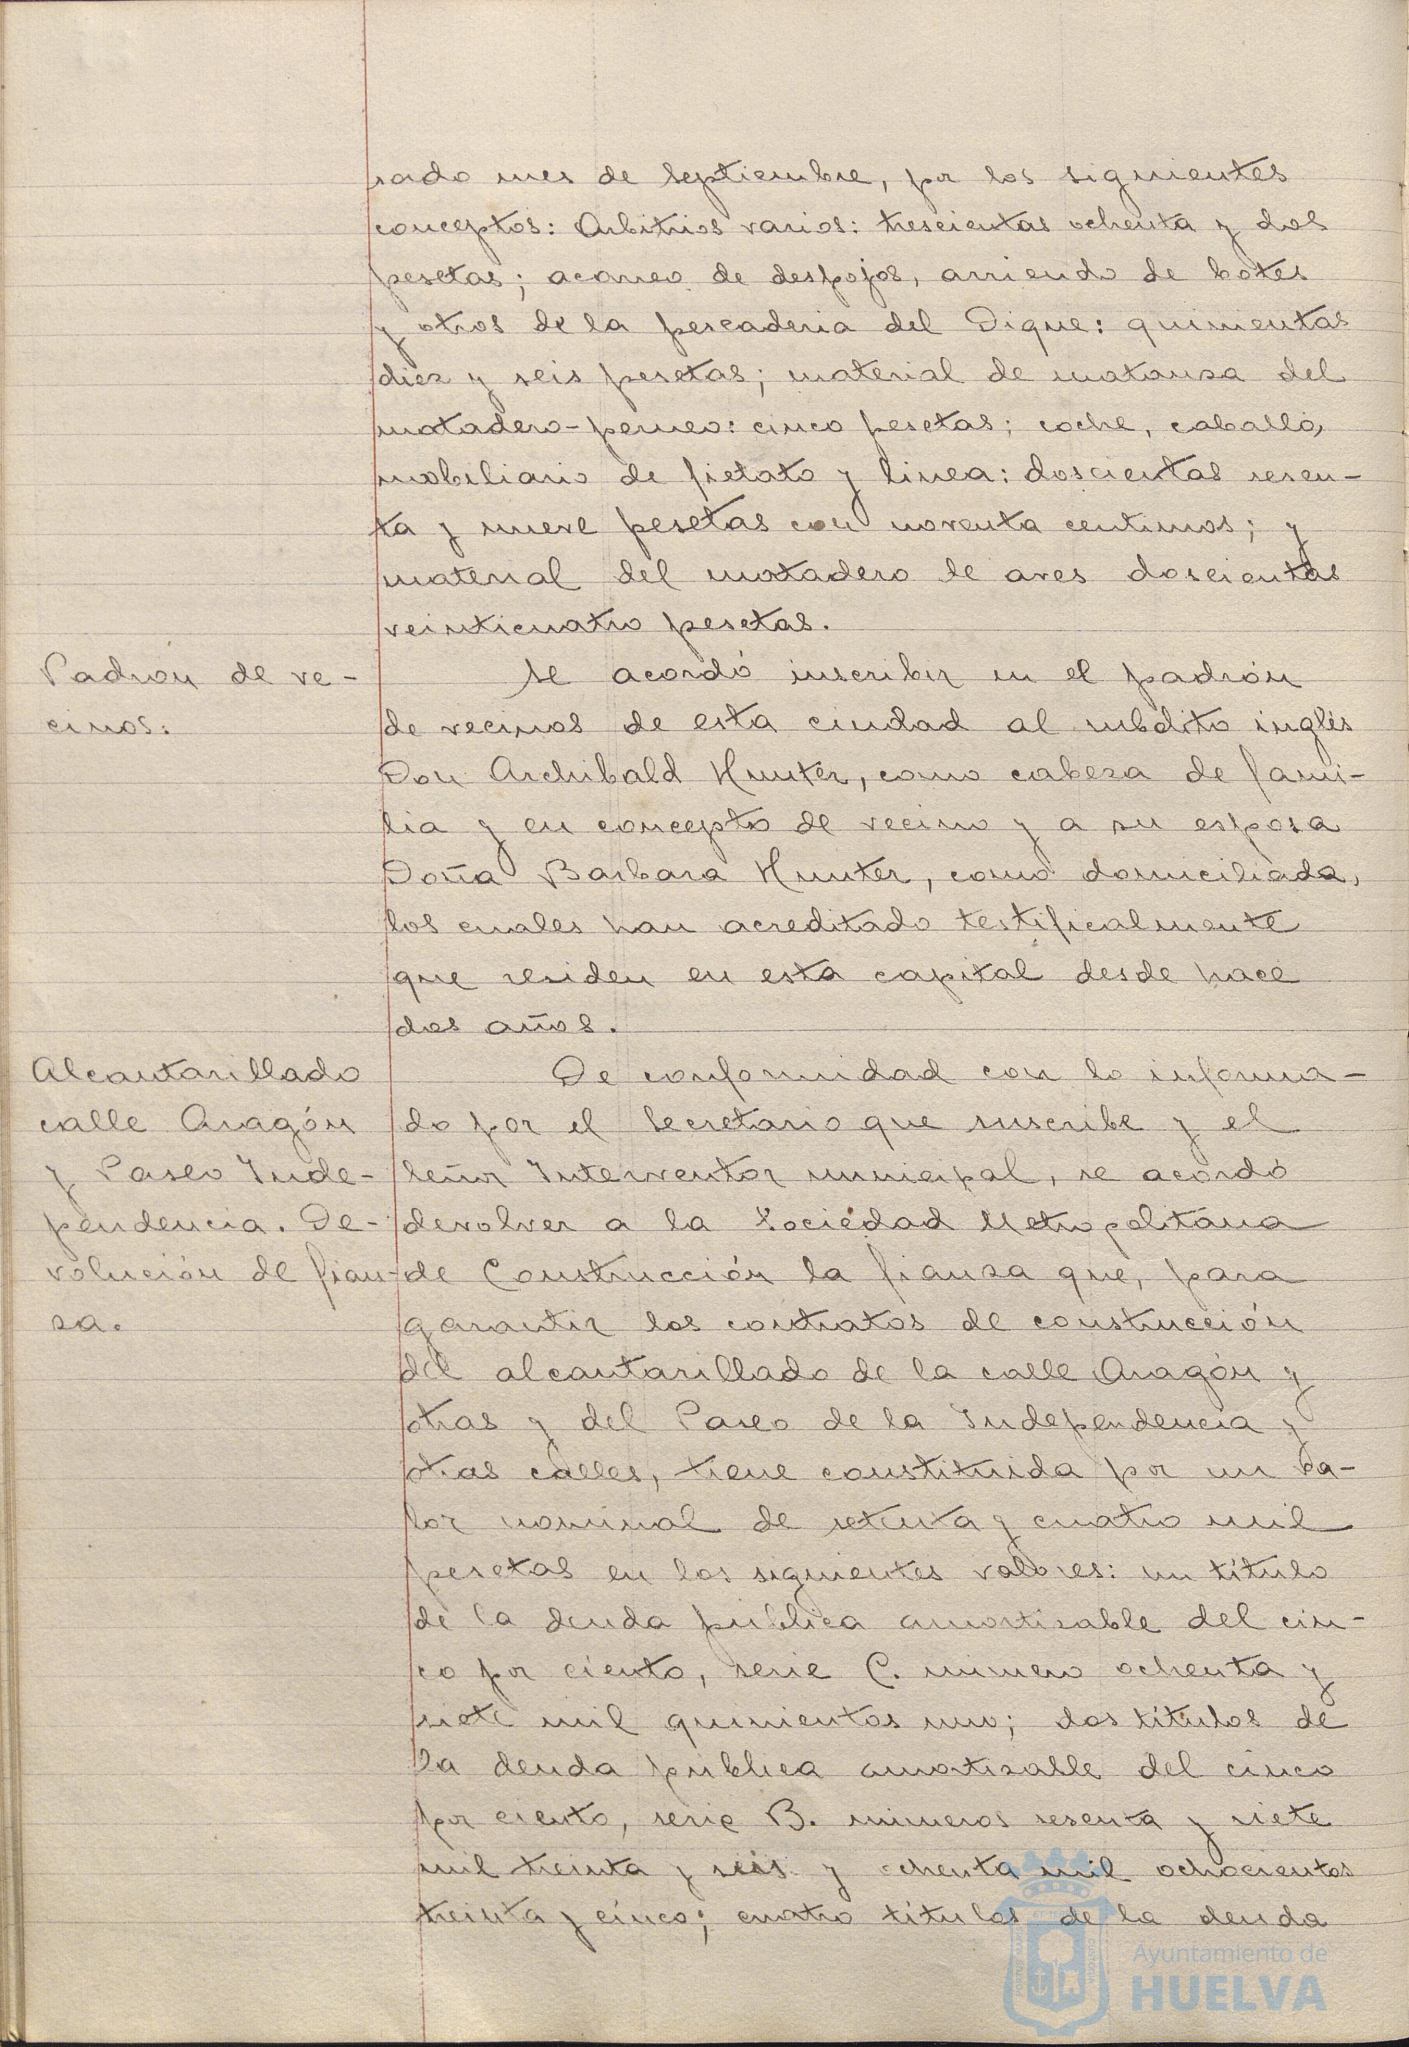 sado mes de Septiembre, por los siguientes
conceptos: Arbitrios varios: trescientas ochenta y dos
pesetas; acarreo de despojos, arriendo de botes
y otros de la pescaderia del Dique: quinientas
diez y seis pesetas; material de matanza del
matadero-perneo: cinco pesetas; coche, caballo,
mobiliario de fielato y linea: doscientas sesen-
ta y nueve pesetas con noventa centimos; y
material del matadero de aves doscientas
veinticuatro pesetas.
Padrón de ve-
cinos.
Se acordó inscribir en el padrón
de vecinos de esta ciudad al subdito inglés
Don Archibald Hunter, como cabeza de fami-
lia y en concepto de vecino y a su esposa
Doña Barbara Hunter, como domiciliada,
los cuales han acreditado testificalmente
que residen en esta capital desde hace
dos años.
Alcantarillado
calle Aragón
y Paseo Inde-
pendencia. De-
volución de fian-
za.
De conformidad con lo informa-
do por el Secretario que suscribe y el
Señor Interventor municipal, se acordó
devolver a la Sociedad Metropolitana
de Construcción la fianza que, para
garantir los contratos de construcción
del alcantarillado de la calle Aragón y
otras y del Paseo de la Independencia y
otras calles, tiene constituida por un va-
lor nominal de setenta y cuatro mil
pesetas en los siguientes valores: un título
de la deuda pública amortizable del cin-
co por ciento, serie C. número ochenta y
siete mil quinientos uno; dos títulos de
la deuda pública amortizable del cinco
por ciento, serie B. números sesenta y siete
mil treinta y seis y ochenta mil ochocientos
treinta y cinco; cuatro títulos de la deuda
Ayuntamiento de
HUELVA